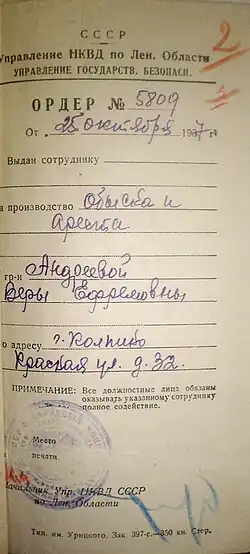 2
СССР
Управление НКВД по Лен. Области
УПРАВЛЕНИЕ ГОСУДАРСТВ. БЕЗОПАСН.
ОРДЕР № 5809
От 25 октября 1937 г.
Выдан сотруднику
а производство Обыска и
Ареста
гр-н Андреевой
Веры Ефремовны
о адресу г. Колпино
Красная ул. д. 32.
ПРИМЕЧАНИЕ: Все должностные лица обязаны
оказывать указанному сотруднику
полное содействие.
Место
печати
Начальник Упр. НКВД СССР
по Лен. Области
Тип. им. Урицкого. Зак 397-с.—350 кн. Стер.